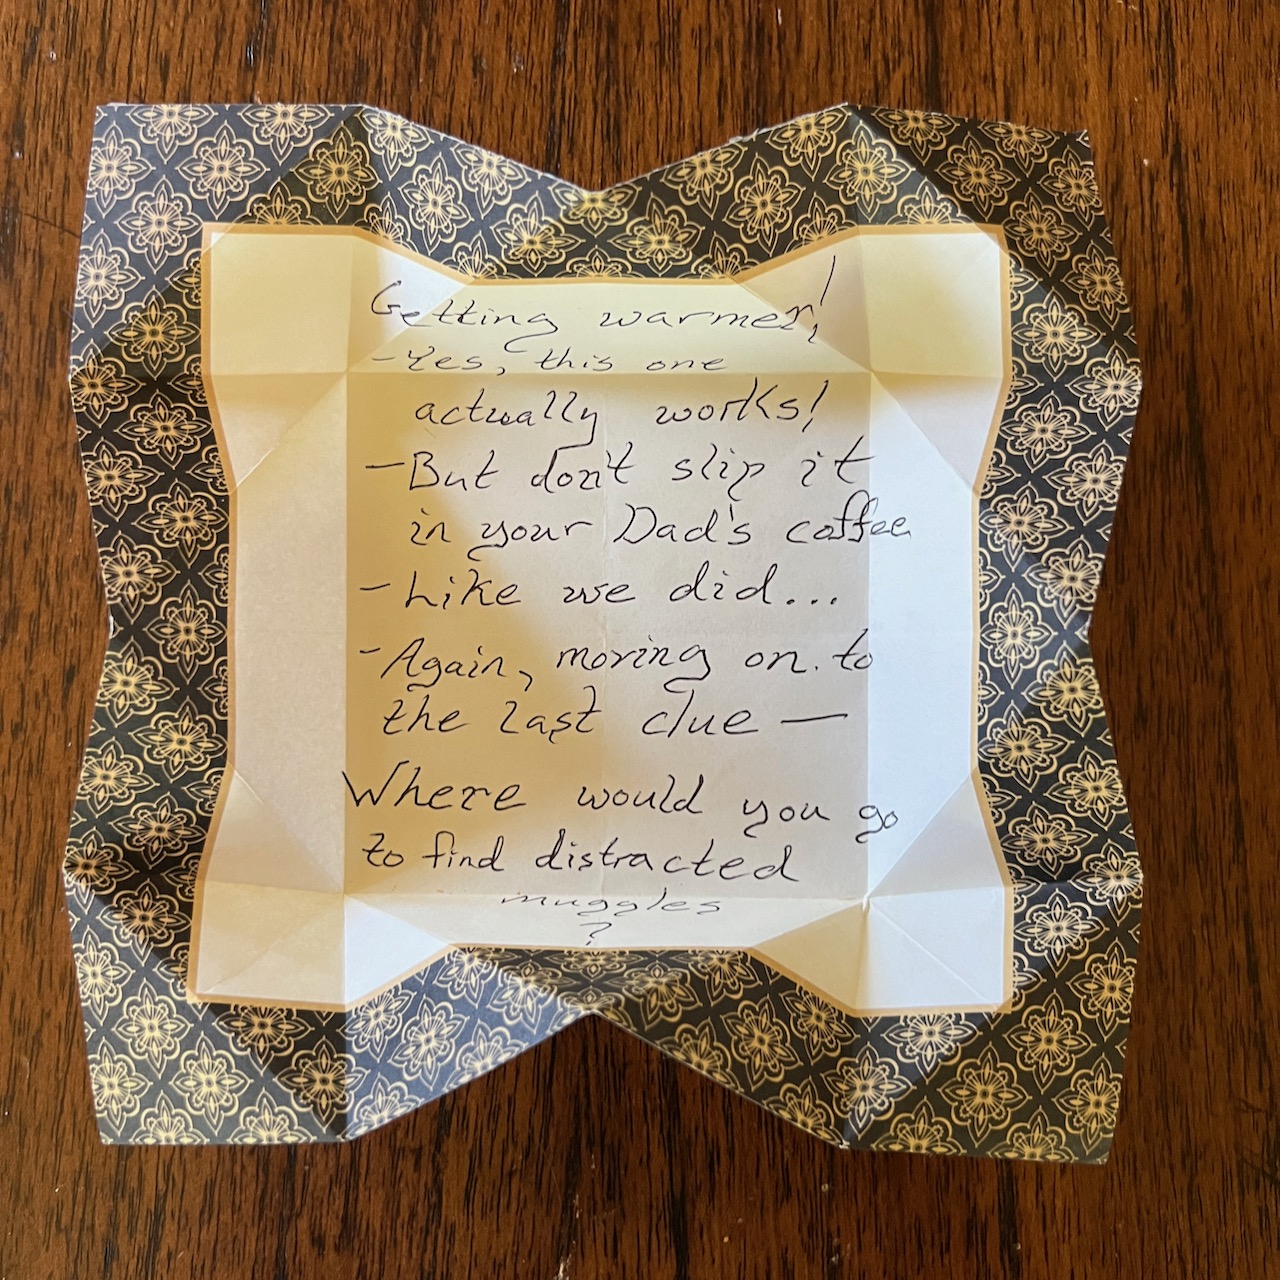 Getting warmer!
- Yes, this one
actually works!
- But don't slip it
in your Dad's coffee
- Like we did...
- Again, moving on to
the last clue —
Where would you go
to find distracted
muggles
?